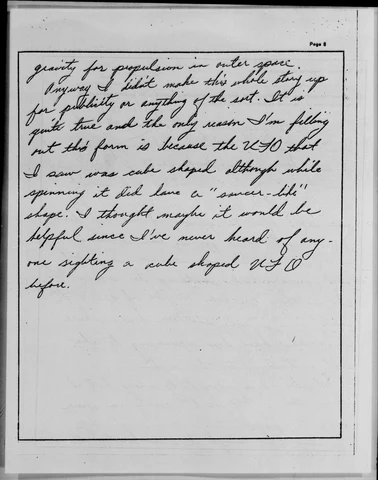 Page 8
gravity for propulsion in outer space.
Anyway I didn't make this whole story up
for publicity or anything of the sort. It is
quite true and the only reason I'm filling
out this form is because the UFO that
I saw was cube shaped although while
spinning it did have a "saucer-like"
shape. I thought maybe it would be
helpful since I've never heard of any-
one sighting a cube shaped UFO
before.